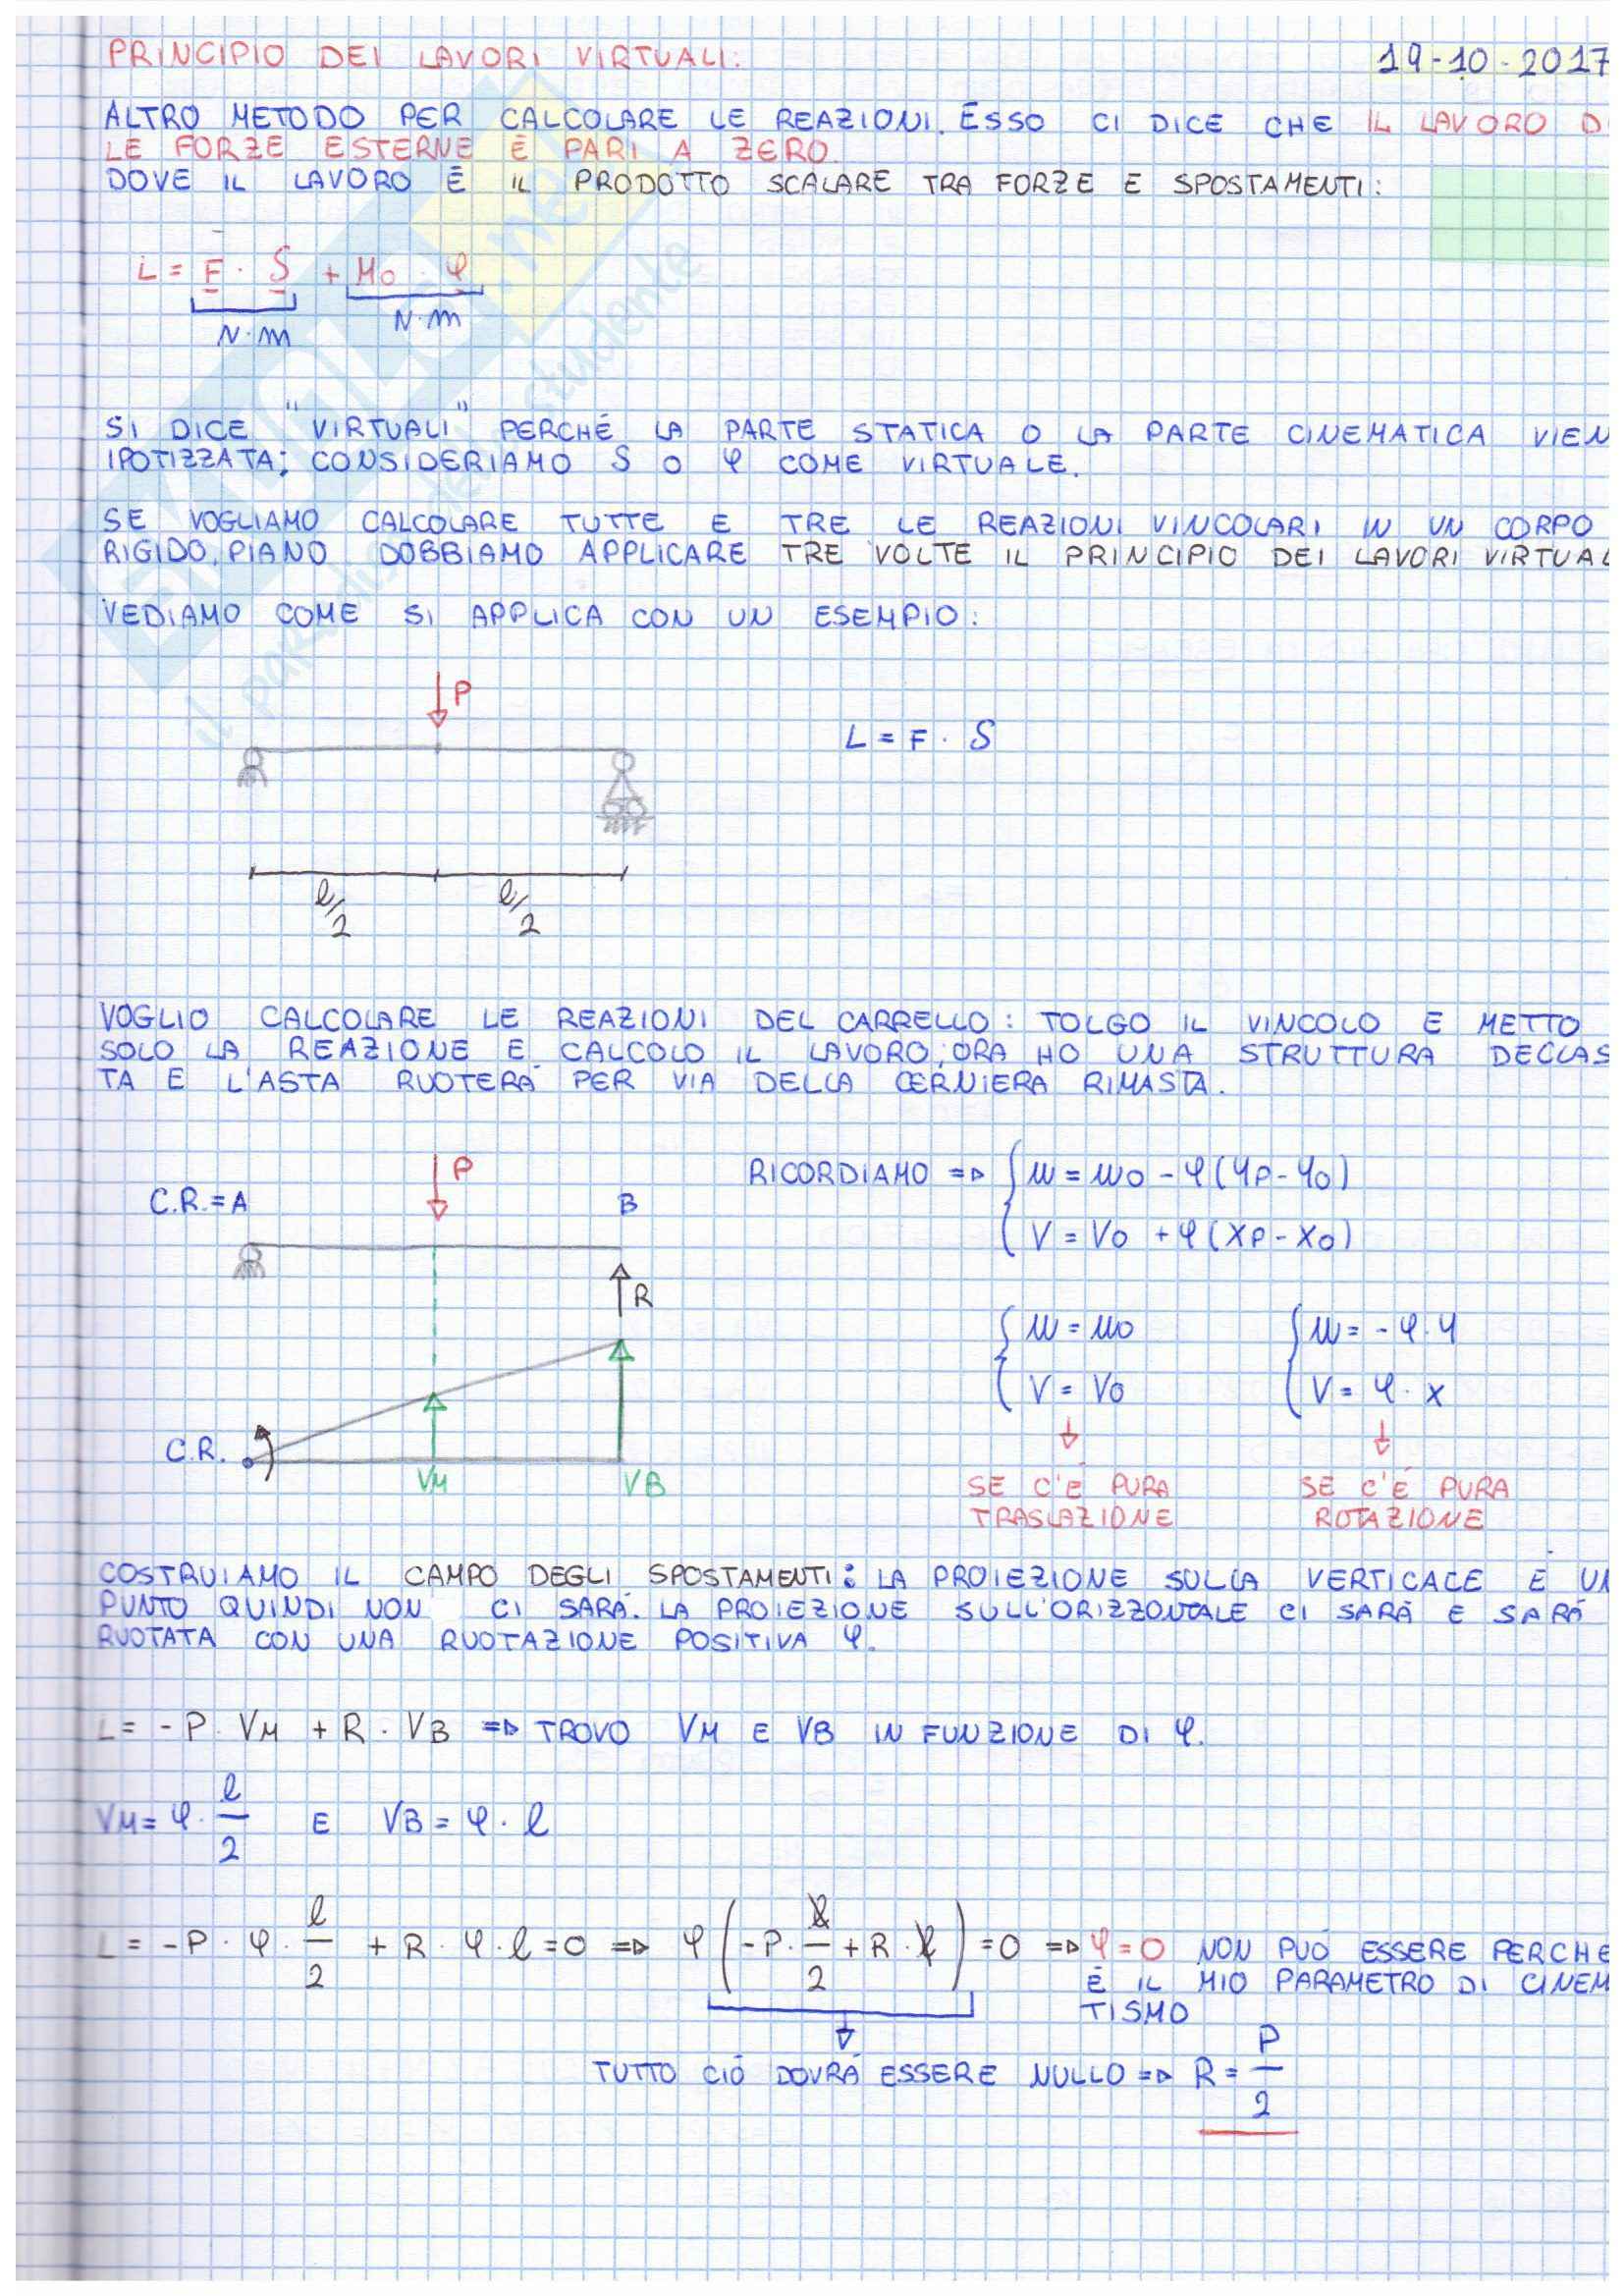 PRINCIPIO DEI LAVORI VIRTUALI: 19-10-2017
ALTRO METODO PER CALCOLARE LE REAZIONI. ESSO CI DICE CHE IL LAVORO D
LE FORZE ESTERNE È PARI A ZERO.
DOVE IL LAVORO È IL PRODOTTO SCALARE TRA FORZE E SPOSTAMENTI:
L = F · S + Mo · φ
N·m N·m
SI DICE "VIRTUALI" PERCHÉ LA PARTE STATICA O LA PARTE CINEMATICA VIEN
IPOTIZZATA; CONSIDERIAMO S O φ COME VIRTUALE.
SE VOGLIAMO CALCOLARE TUTTE E TRE LE REAZIONI VINCOLARI IN UN CORPO
RIGIDO PIANO DOBBIAMO APPLICARE TRE VOLTE IL PRINCIPIO DEI LAVORI VIRTUAL
VEDIAMO COME SI APPLICA CON UN ESEMPIO:
P
L = F · S
l/2 l/2
VOGLIO CALCOLARE LE REAZIONI DEL CARRELLO: TOLGO IL VINCOLO E METTO
SOLO LA REAZIONE E CALCOLO IL LAVORO; ORA HO UNA STRUTTURA DECLAS
TA E L'ASTA RUOTERÀ PER VIA DELLA CERNIERA RIMASTA.
C.R. = A P B
RICORDIAMO => { u = uo - φ(yp - yo)
V = Vo + φ(xp - xo)
R
{ u = uo { u = - φ · y
V = Vo V = φ · x
C.R. VM VB
SE C'È PURA TRASLAZIONE
SE C'È PURA ROTAZIONE
COSTRUIAMO IL CAMPO DEGLI SPOSTAMENTI: LA PROIEZIONE SULLA VERTICALE È UN
PUNTO QUINDI NON CI SARÀ. LA PROIEZIONE SULL'ORIZZONTALE CI SARÀ E SARÀ
RUOTATA CON UNA RUOTAZIONE POSITIVA φ.
L = -P · VM + R · VB => TROVO VM E VB IN FUNZIONE DI φ.
VM = φ · l/2 E VB = φ · l
L = -P · φ · l/2 + R · φ · l = 0 => φ(-P · l/2 + R · l) = 0 => φ = 0 NON PUÒ ESSERE PERCHÉ
È IL MIO PARAMETRO DI CINEM
TISMO
TUTTO CIÒ DOVRÀ ESSERE NULLO => R = P/2